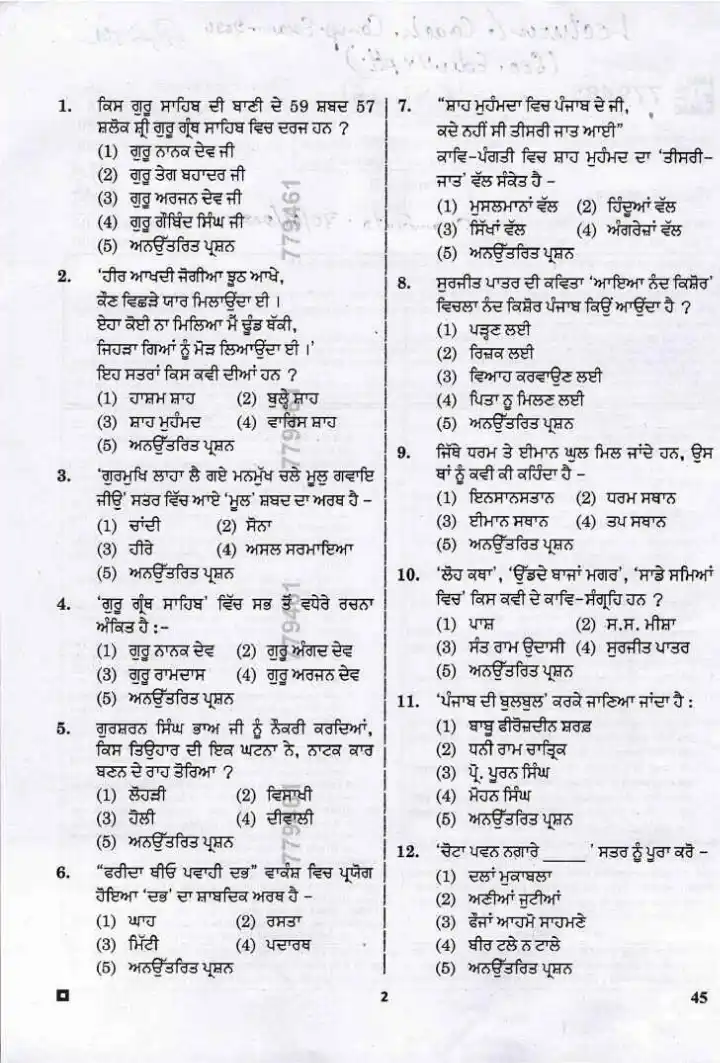 1. ਕਿਸ ਗੁਰੂ ਸਾਹਿਬ ਦੀ ਬਾਣੀ ਦੇ 59 ਸ਼ਬਦ 57
ਸ਼ਲੋਕ ਸ਼੍ਰੀ ਗੁਰੂ ਗ੍ਰੰਥ ਸਾਹਿਬ ਵਿਚ ਦਰਜ ਹਨ ?
(1) ਗੁਰੂ ਨਾਨਕ ਦੇਵ ਜੀ
(2) ਗੁਰੂ ਤੇਗ ਬਹਾਦਰ ਜੀ
(3) ਗੁਰੂ ਅਰਜਨ ਦੇਵ ਜੀ
(4) ਗੁਰੂ ਗੌਬਿੰਦ ਸਿੰਘ ਜੀ
(5) ਅਨਉੱਤਰਿਤ ਪ੍ਰਸ਼ਨ
2. ‘ਹੀਰ ਆਖਦੀ ਜੋਗੀਆ ਝੂਠ ਆਖੇ,
ਕੌਣ ਵਿਛੜੇ ਯਾਰ ਮਿਲਾਉਂਦਾ ਈ ।
ਏਹਾ ਕੋਈ ਨਾ ਮਿਲਿਆ ਮੈਂ ਢੂੰਡ ਥੱਕੀ,
ਜਿਹੜਾ ਗਿਆਂ ਨੂੰ ਮੋੜ ਲਿਆਉਂਦਾ ਈ ।’
ਇਹ ਸਤਰਾਂ ਕਿਸ ਕਵੀ ਦੀਆਂ ਹਨ ?
(1) ਹਾਸ਼ਮ ਸ਼ਾਹ (2) ਬੁਲ੍ਹੇ ਸ਼ਾਹ
(3) ਸ਼ਾਹ ਮੁਹੰਮਦ (4) ਵਾਰਿਸ ਸ਼ਾਹ
(5) ਅਨਉੱਤਰਿਤ ਪ੍ਰਸ਼ਨ
3. ‘ਗੁਰਮੁਖਿ ਲਾਹਾ ਲੈ ਗਏ ਮਨਮੁੱਖ ਚਲੇ ਮੂਲੁ ਗਵਾਇ
ਜੀਉ’ ਸਤਰ ਵਿੱਚ ਆਏ ‘ਮੂਲ’ ਸ਼ਬਦ ਦਾ ਅਰਥ ਹੈ –
(1) ਚਾਂਦੀ (2) ਸੋਨਾ
(3) ਹੀਰੇ (4) ਅਸਲ ਸਰਮਾਇਆ
(5) ਅਨਉੱਤਰਿਤ ਪ੍ਰਸ਼ਨ
4. ‘ਗੁਰੂ ਗ੍ਰੰਥ ਸਾਹਿਬ’ ਵਿੱਚ ਸਭ ਤੋਂ ਵਧੇਰੇ ਰਚਨਾ
ਅੰਕਿਤ ਹੈ :–
(1) ਗੁਰੂ ਨਾਨਕ ਦੇਵ (2) ਗੁਰੂ ਅੰਗਦ ਦੇਵ
(3) ਗੁਰੂ ਰਾਮਦਾਸ (4) ਗੁਰੂ ਅਰਜਨ ਦੇਵ
(5) ਅਨਉੱਤਰਿਤ ਪ੍ਰਸ਼ਨ
5. ਗੁਰਸ਼ਰਨ ਸਿੰਘ ਭਾਅ ਜੀ ਨੂੰ ਨੌਕਰੀ ਕਰਦਿਆਂ,
ਕਿਸ ਤਿਉਹਾਰ ਦੀ ਇਕ ਘਟਨਾ ਨੇ, ਨਾਟਕ ਕਾਰ
ਬਣਨ ਦੇ ਰਾਹ ਤੋਰਿਆ ?
(1) ਲੋਹੜੀ (2) ਵਿਸਾਖੀ
(3) ਹੋਲੀ (4) ਦੀਵਾਲੀ
(5) ਅਨਉੱਤਰਿਤ ਪ੍ਰਸ਼ਨ
6. “ਫਰੀਦਾ ਥੀਓ ਪਵਾਹੀ ਦਭ” ਵਾਕੰਸ਼ ਵਿਚ ਪ੍ਰਯੋਗ
ਹੋਇਆ ‘ਦਭ’ ਦਾ ਸ਼ਾਬਦਿਕ ਅਰਥ ਹੈ –
(1) ਘਾਹ (2) ਰਸਤਾ
(3) ਮਿੱਟੀ (4) ਪਦਾਰਥ
(5) ਅਨਉੱਤਰਿਤ ਪ੍ਰਸ਼ਨ
7. “ਸ਼ਾਹ ਮੁਹੰਮਦਾ ਵਿਚ ਪੰਜਾਬ ਦੇ ਜੀ,
ਕਦੇ ਨਹੀਂ ਸੀ ਤੀਸਰੀ ਜਾਤ ਆਈ”
ਕਾਵਿ-ਪੰਗਤੀ ਵਿਚ ਸ਼ਾਹ ਮੁਹੰਮਦ ਦਾ ‘ਤੀਸਰੀ-
ਜਾਤ’ ਵੱਲ ਸੰਕੇਤ ਹੈ –
(1) ਮੁਸਲਮਾਨਾਂ ਵੱਲ (2) ਹਿੰਦੂਆਂ ਵੱਲ
(3) ਸਿੱਖਾਂ ਵੱਲ (4) ਅੰਗਰੇਜ਼ਾਂ ਵੱਲ
(5) ਅਨਉੱਤਰਿਤ ਪ੍ਰਸ਼ਨ
8. ਸੁਰਜੀਤ ਪਾਤਰ ਦੀ ਕਵਿਤਾ ‘ਆਇਆ ਨੰਦ ਕਿਸ਼ੋਰ’
ਵਿਚਲਾ ਨੰਦ ਕਿਸ਼ੋਰ ਪੰਜਾਬ ਕਿਉਂ ਆਉਂਦਾ ਹੈ ?
(1) ਪੜ੍ਹਣ ਲਈ
(2) ਰਿਜ਼ਕ ਲਈ
(3) ਵਿਆਹ ਕਰਵਾਉਣ ਲਈ
(4) ਪਿਤਾ ਨੂ ਮਿਲਣ ਲਈ
(5) ਅਨਉੱਤਰਿਤ ਪ੍ਰਸ਼ਨ
9. ਜਿੱਥੇ ਧਰਮ ਤੇ ਈਮਾਨ ਘੁਲ ਮਿਲ ਜਾਂਦੇ ਹਨ, ਉਸ
ਥਾਂ ਨੂੰ ਕਵੀ ਕੀ ਕਹਿੰਦਾ ਹੈ –
(1) ਇਨਸਾਨਸਤਾਨ (2) ਧਰਮ ਸਥਾਨ
(3) ਈਮਾਨ ਸਥਾਨ (4) ਤਪ ਸਥਾਨ
(5) ਅਨਉੱਤਰਿਤ ਪ੍ਰਸ਼ਨ
10. ‘ਲੋਹ ਕਥਾ’, ‘ਉੱਡਦੇ ਬਾਜਾਂ ਮਗਰ’, ‘ਸਾਡੇ ਸਮਿਆਂ
ਵਿਚ’ ਕਿਸ ਕਵੀ ਦੇ ਕਾਵਿ-ਸੰਗ੍ਰਹਿ ਹਨ ?
(1) ਪਾਸ਼ (2) ਸ.ਸ. ਮੀਸ਼ਾ
(3) ਸੰਤ ਰਾਮ ਉਦਾਸੀ (4) ਸੁਰਜੀਤ ਪਾਤਰ
(5) ਅਨਉੱਤਰਿਤ ਪ੍ਰਸ਼ਨ
11. ‘ਪੰਜਾਬ ਦੀ ਬੁਲਬੁਲ’ ਕਰਕੇ ਜਾਣਿਆ ਜਾਂਦਾ ਹੈ :
(1) ਬਾਬੂ ਫੀਰੋਜ਼ਦੀਨ ਸ਼ਰਫ਼
(2) ਧਨੀ ਰਾਮ ਚਾਤ੍ਰਿਕ
(3) ਪ੍ਰੋ. ਪੂਰਨ ਸਿੰਘ
(4) ਮੋਹਨ ਸਿੰਘ
(5) ਅਨਉੱਤਰਿਤ ਪ੍ਰਸ਼ਨ
12. ‘ਚੋਟਾ ਪਵਨ ਨਗਾਰੇ _____ ’ ਸਤਰ ਨੂੰ ਪੂਰਾ ਕਰੋ –
(1) ਦਲਾਂ ਮੁਕਾਬਲਾ
(2) ਅਣੀਆਂ ਜੁਟੀਆਂ
(3) ਫੌਜਾਂ ਆਹਮੋ ਸਾਹਮਣੇ
(4) ਬੀਰ ਟਲੇ ਨ ਟਾਲੇ
(5) ਅਨਉੱਤਰਿਤ ਪ੍ਰਸ਼ਨ
2
45
779461
779461
779461
779461